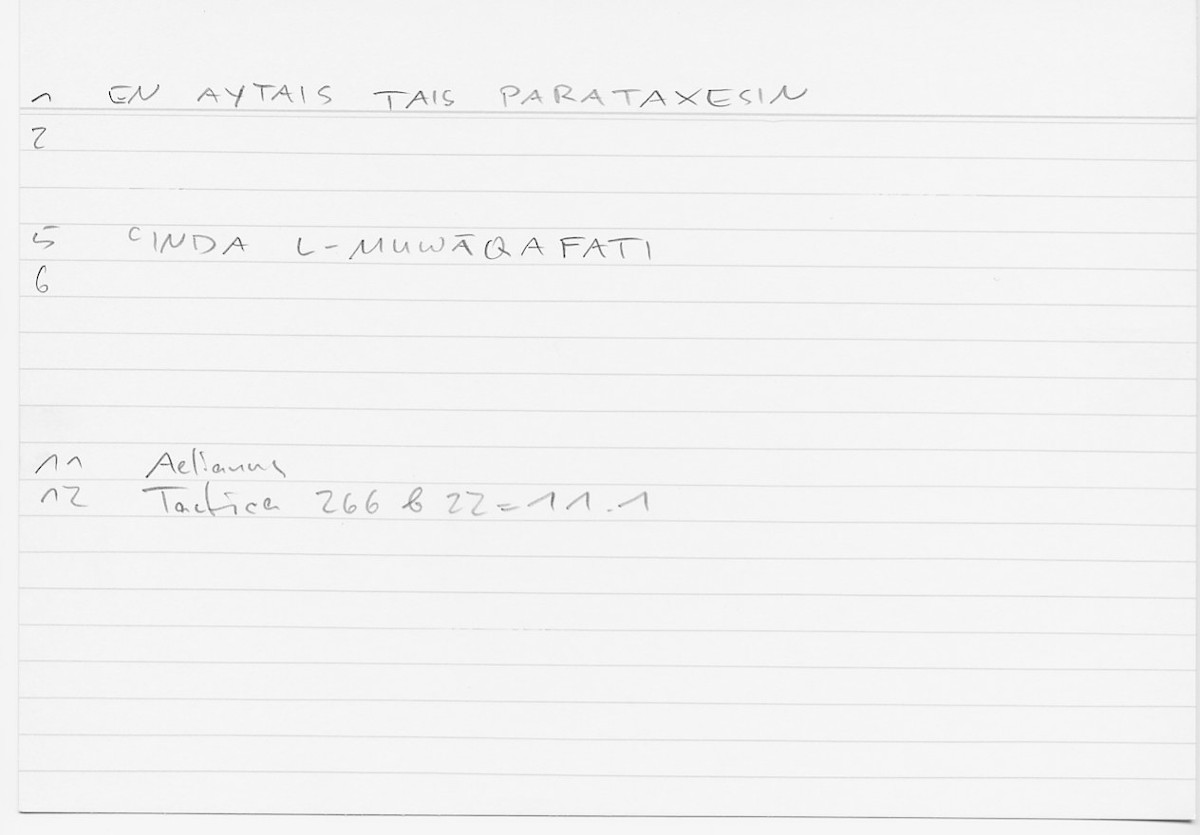 1 EN AYTAIS TAIS PARATAXESIN
2
5 ʿINDA L-MUWĀQAFATI
6
11 Aelianus
12 Tactica 266 b 22 = 11.1